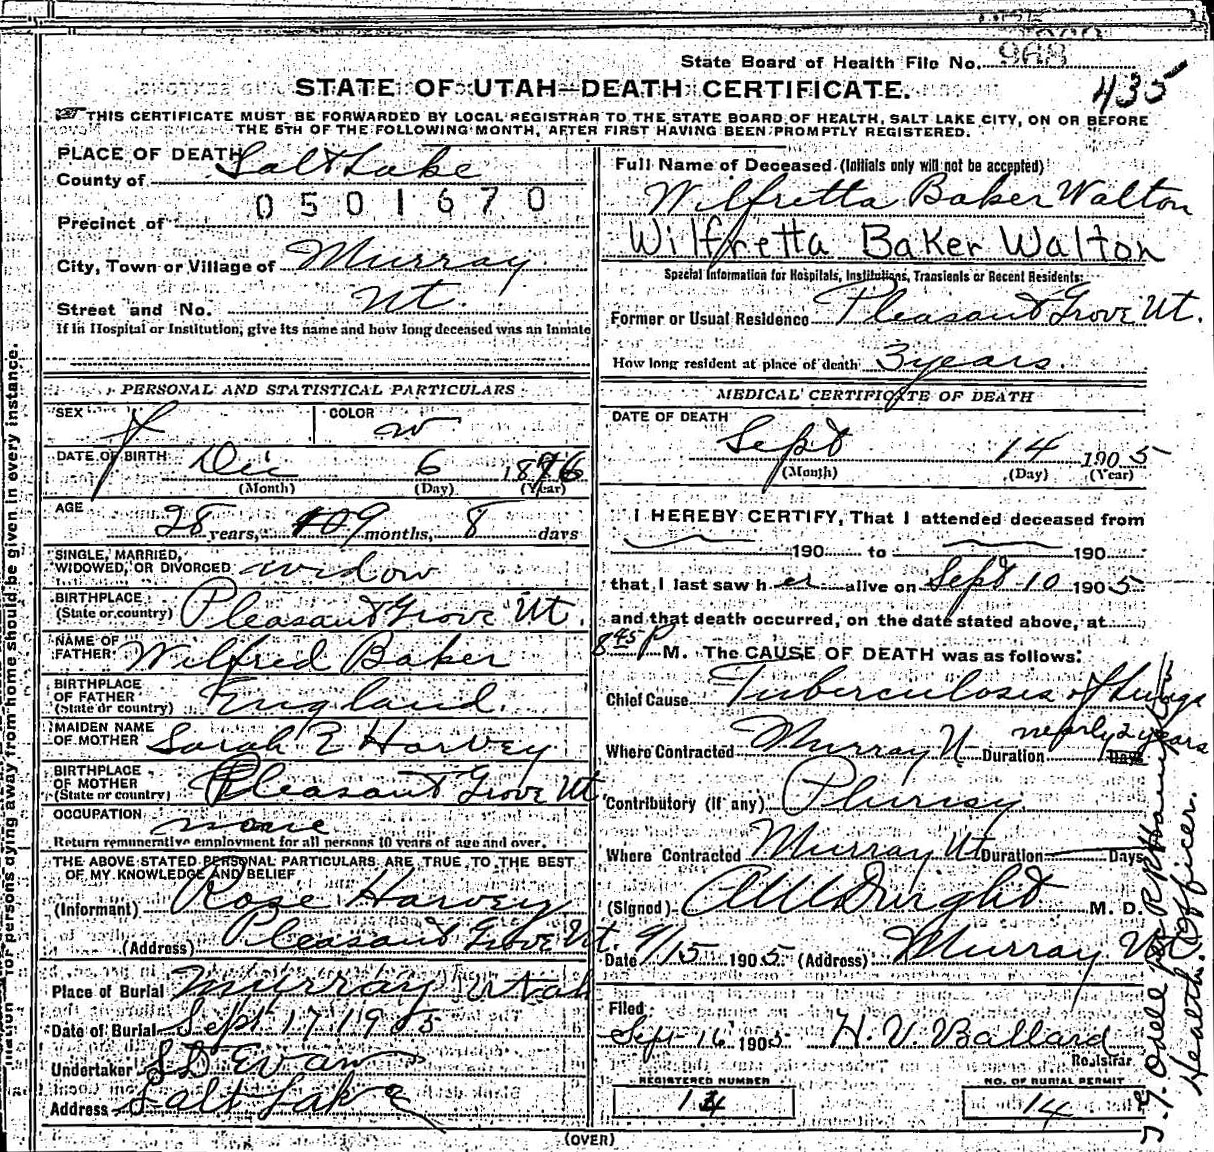 State Board of Health File No. 968
435
STATE OF UTAH—DEATH CERTIFICATE.
THIS CERTIFICATE MUST BE FORWARDED BY LOCAL REGISTRAR TO THE STATE BOARD OF HEALTH, SALT LAKE CITY, ON OR BEFORE
THE 5TH OF THE FOLLOWING MONTH, AFTER FIRST HAVING BEEN PROMPTLY REGISTERED.
PLACE OF DEATH
County of Salt Lake
0501670
Precinct of
City, Town or Village of Murray
Street and No. Ut.
If in Hospital or Institution, give its name and how long deceased was an Inmate
PERSONAL AND STATISTICAL PARTICULARS
SEX f COLOR w
DATE OF BIRTH Dec 6 1876
(Month) (Day) (Year)
AGE
28 years, 09 months, 8 days
SINGLE, MARRIED,
WIDOWED, OR DIVORCED widow
BIRTHPLACE
(State or country) Pleasant Grove Ut.
NAME OF
FATHER Wilfred Baker
BIRTHPLACE
OF FATHER
(State or country) England.
MAIDEN NAME
OF MOTHER Sarah E Harvey
BIRTHPLACE
OF MOTHER
(State or country) Pleasant Grove Ut
OCCUPATION none
Return remunerative employment for all persons 10 years of age and over.
THE ABOVE STATED PERSONAL PARTICULARS ARE TRUE TO THE BEST
OF MY KNOWLEDGE AND BELIEF
(Informant) Rose Harvey
(Address) Pleasant Grove Ut.
Place of Burial Murray Utah
Date of Burial Sept 17 1905
Undertaker S D Evans
Address Salt Lake
Full Name of Deceased (Initials only will not be accepted)
Wilfretta Baker Walton
Wilfretta Baker Walton
Special Information for Hospitals, Institutions, Transients or Recent Residents:
Former or Usual Residence Pleasant Grove Ut.
How long resident at place of death 3 years.
MEDICAL CERTIFICATE OF DEATH
DATE OF DEATH
Sept 14 1905
(Month) (Day) (Year)
I HEREBY CERTIFY, That I attended deceased from
190 to 190
that I last saw her alive on Sept 10 1905
and that death occurred, on the date stated above, at
8 45 P M. The CAUSE OF DEATH was as follows:
Chief Cause Tuberculosis of Lungs
Where Contracted Murray U Duration nearly 2 years Days
Contributory (if any) Plurisy
Where Contracted Murray Ut Duration Days
(Signed) Wright M. D.
Date 9/15 1905 (Address) Murray Ut
Filed
Sept 16 1905 H. V. Ballard
Registrar
REGISTERED NUMBER
14
NO. OF BURIAL PERMIT
14
(OVER)
for persons dying away from home should be given in every instance.
Health Officer.